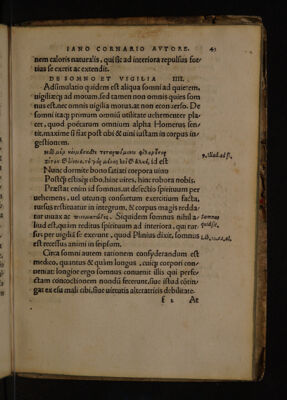 IANO CORNARIO AVTORE. 45
nem caloris naturalis, qui sic ad interiora repulsus for-
tius se exerit ac extendit.
DE SOMNO ET VIGILIA IIII.
Ad somulatio quidem est aliqua somni ad quietem,
uigiliæq; ad motum, sed tamen non omnis quies som-
nus est, nec omnis uigilia motus, at non econuerso. De
somni itaq; primum omniū utilitate uehementer pla-
cet, quod poëtarum omnium alpha Homerus sen-
tit, maxime si fiat post cibi & uini iustam in corpus in-
gestionem.
id est
Nunc dormite bono satiati corpora uino
Postq̃ est cibo, hinc uires, hinc robora nobis.
Præstat enim id somnus, ut defectio spirituum per
uehemens, uel utunque consuetum exercitium facta,
rursus restituatur in integrum, & corpus magis redda-
tur uiuax ac Siquidem somnus nihil a-
liud est, quàm reditus spirituum ad interiora, qui rur-
sus per uigiliā se exerunt, quod Plinius dixit, somnus
est recessus animi in seipsum.
Circa somni autem rationem consyderandum est
medico, quantus & quàm longus, cuiq; corpori con-
ueniat: longior ergo somnus conuenit illis qui perfe-
ctam concoctionem nondū fecerunt, siue istud cōtin-
gat ex esu mali cibi, siue uirtutis alteratricis debilitate.
f 2 At